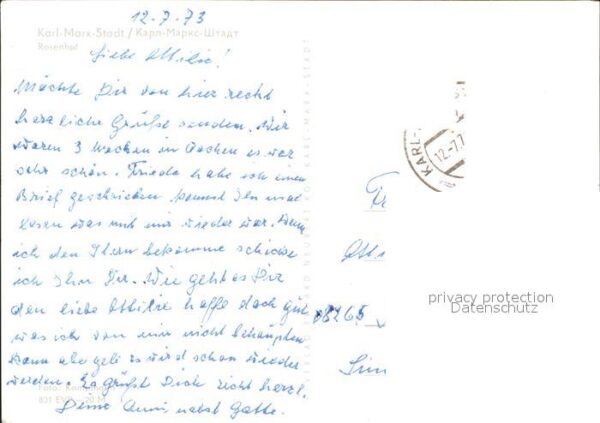 12-7-73
Karl-Marx-Stadt / Карл-Маркс-Штадт
Rosenhof
Liebe Ottilie!
Möchte Dir von hier recht
herzliche Grüße senden. Wir
waren 3 Wochen in Aachen es war
sehr schön. Frieda habe ich einen
Brief geschrieben kannst Ihn mal
lesen was mit mir wieder war. Wenn
ich den Ihern bekomme schicke
ich Ihn Dir. Wie geht es Dir
den liebe Ottilie hoffe doch gut
was ich von mir nicht behaupten
kann aber geb es wird schon wieder
werden. Es grüßt Dich recht herzl.
Deine Anni nebst Gatte.
Foto:
831 EVP −,20 M
KARL-
12-7.7
Fr
Otti
8265
privacy protection
Datenschutz